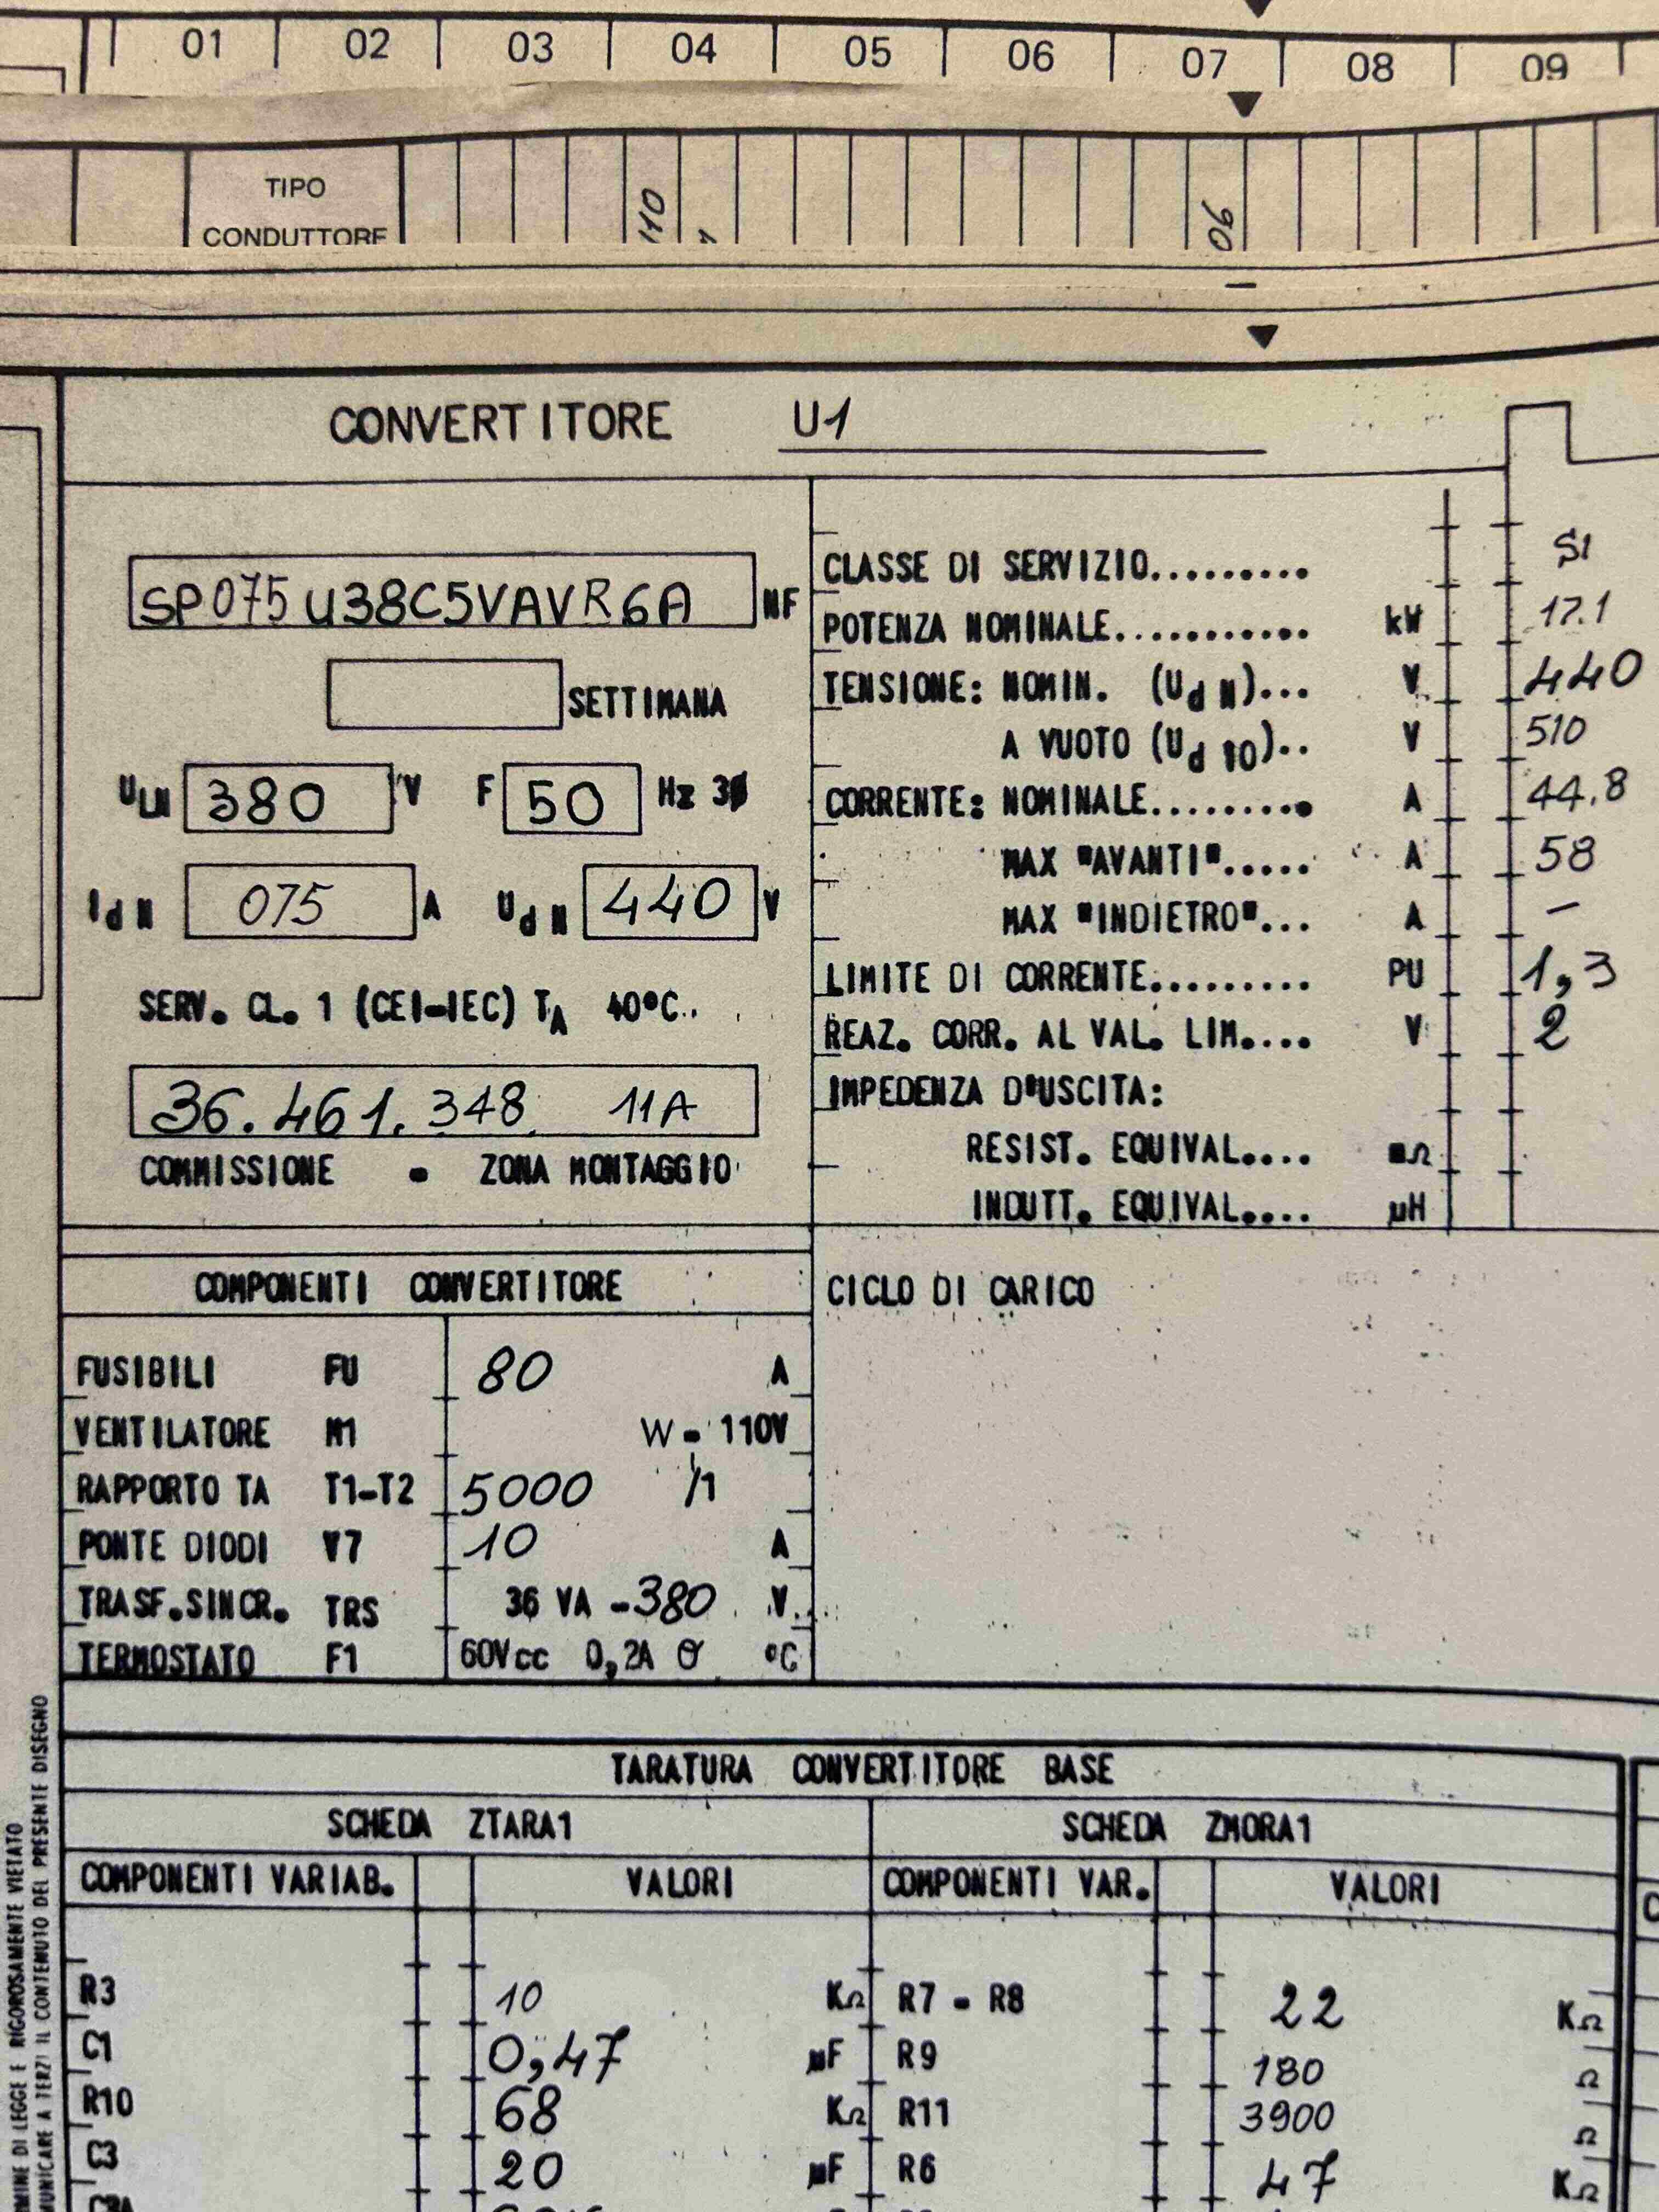 01 02 03 04 05 06 07 08 09
TIPO
CONDUTTORE 110 90
CONVERTITORE U1
SP075U38C5VAVR6A NF
SETTIMANA
ULN 380 V F 50 Hz 3Ø
IdN 075 A UdN 440 V
SERV. CL. 1 (CEI-IEC) TA 40°C.
36.461.348 11A
COMMISSIONE - ZONA MONTAGGIO
CLASSE DI SERVIZIO......... S1
POTENZA NOMINALE............ kW 17.1
TENSIONE: NOMIN. (UdN)... V 440
A VUOTO (Ud10).. V 510
CORRENTE: NOMINALE......... A 44.8
MAX "AVANTI"..... A 58
MAX "INDIETRO"... A –
LIMITE DI CORRENTE......... PU 1,3
REAZ. CORR. AL VAL. LIM.... V 2
IMPEDENZA D'USCITA:
RESIST. EQUIVAL.... mΩ
INDUTT. EQUIVAL.... µH
COMPONENTI CONVERTITORE
FUSIBILI FU 80 A
VENTILATORE M1 W - 110V
RAPPORTO TA T1-T2 5000 /1
PONTE DIODI V7 10 A
TRASF.SINCR. TRS 36 VA - 380 V
TERMOSTATO F1 60Vcc 0,2A θ °C
CICLO DI CARICO
TARATURA CONVERTITORE BASE
SCHEDA ZTARA1 SCHEDA ZMORA1
COMPONENTI VARIAB. VALORI COMPONENTI VAR. VALORI
R3 10 KΩ R7 - R8 22 KΩ
C1 0,47 µF R9 180 Ω
R10 68 KΩ R11 3900 Ω
C3 20 µF R6 47 KΩ
RMINE DI LEGGE E RIGOROSAMENTE VIETATO
MUNICARE A TERZI IL CONTENUTO DEL PRESENTE DISEGNO